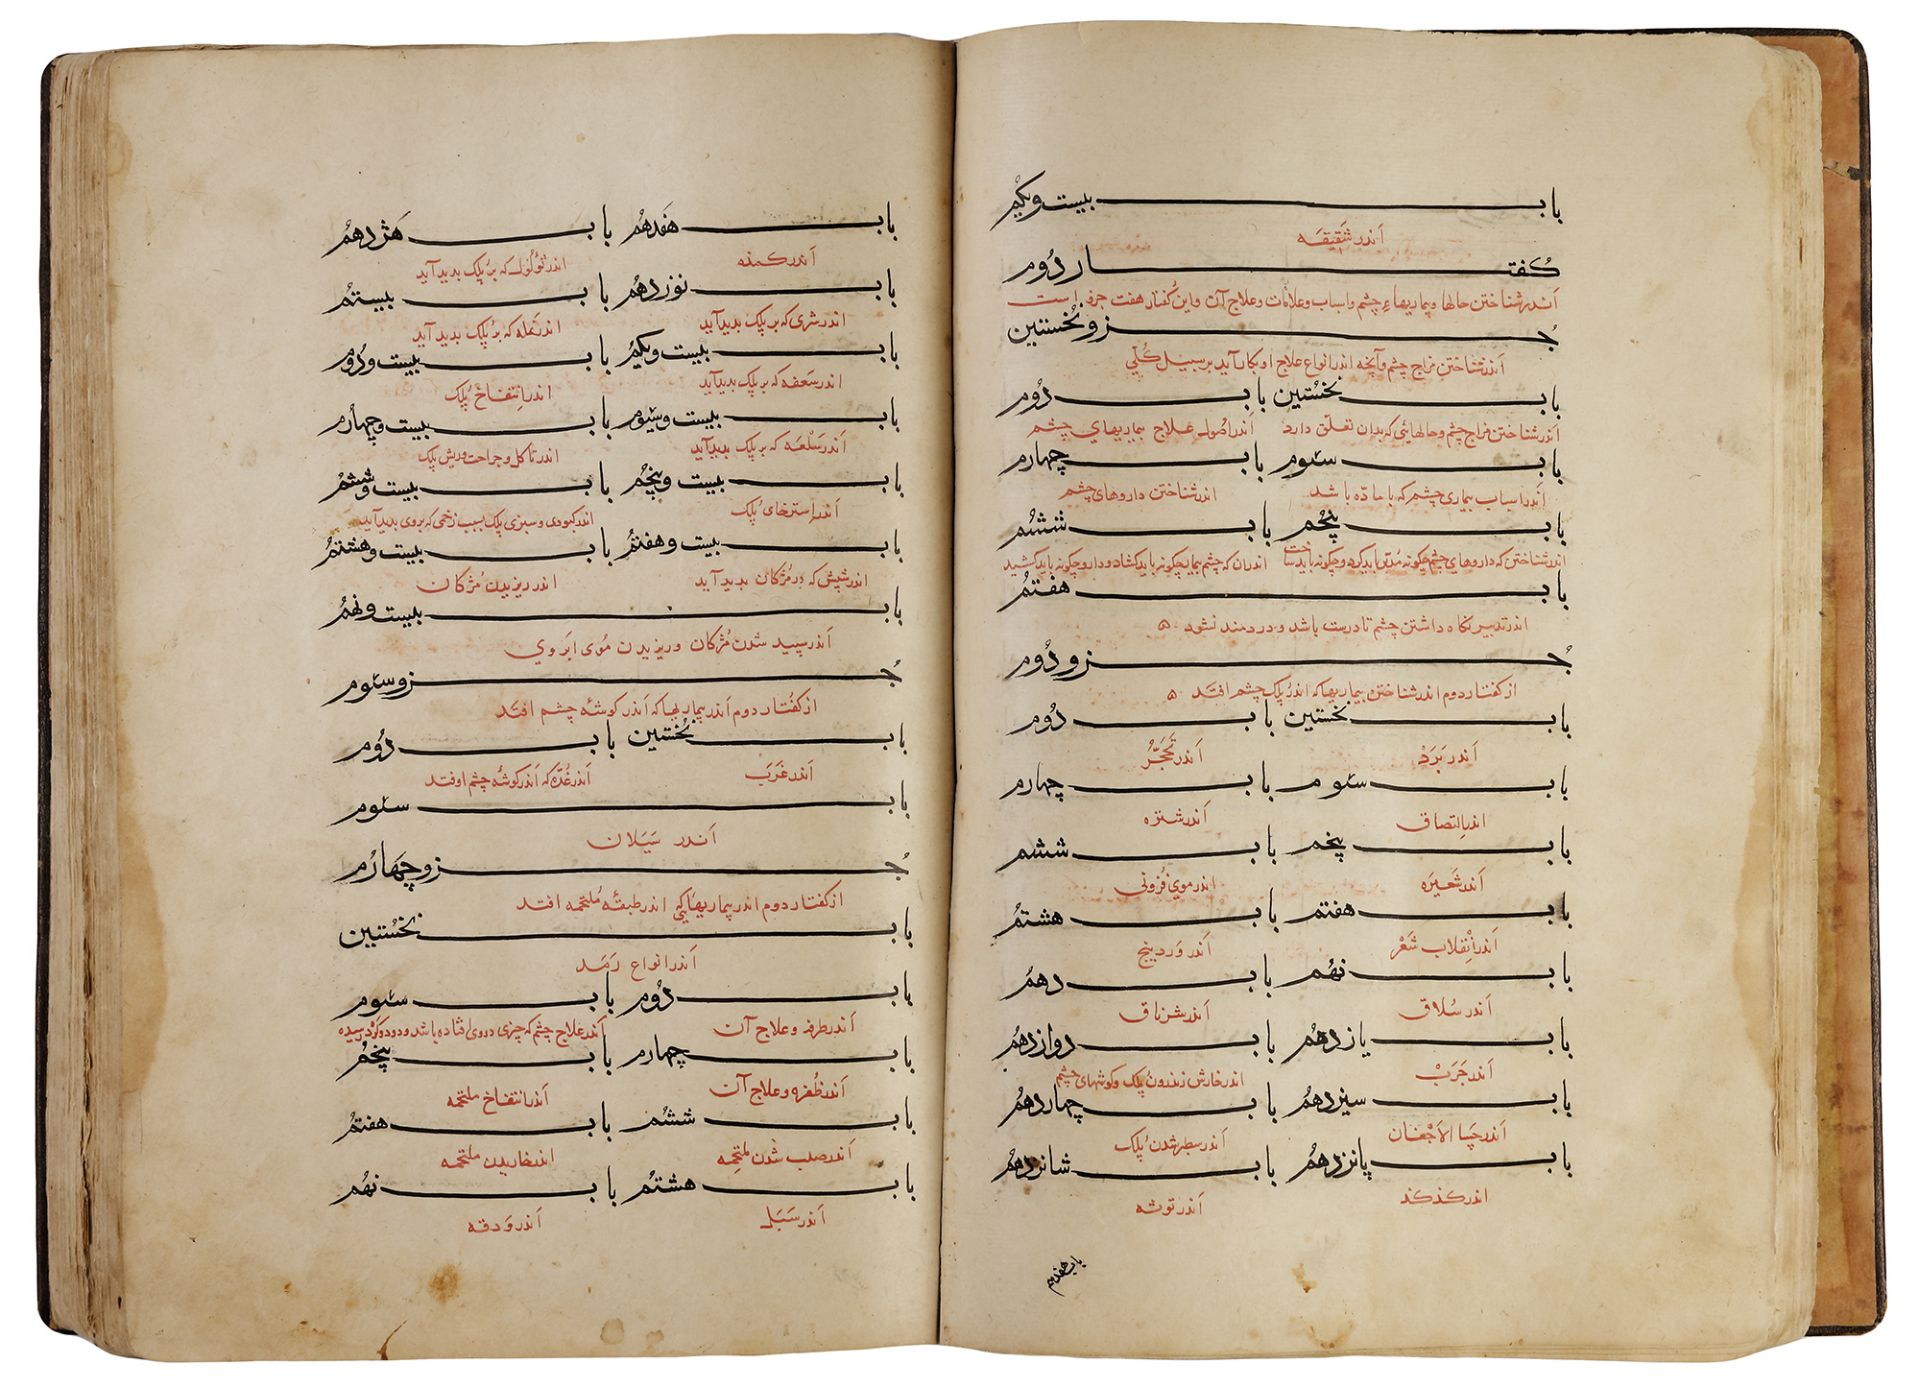 باب بیست ویکم
اَندر شَقیقَه
کُفتار دُوم
اَندر شناختن حالها وبیماریهاءِ چشم واسباب وعلامات وعلاج آن واین کُفتار هفت جزو است
جُزو نُخستین
اَندر شناختن مزاج چشم وآنچه اندر انواع علاج او بکار آید بر سبیل کُلّی
باب نخُستین باب دُوم
اَندر شناختن مزاج چشم وحالهایی که بدان تعلّق دارد اَندر اُصول علاج بیماریهای چشم
باب سئوم باب چهارم
اندر اسباب بیماری چشم که با مادّه باشد اندر شناختن داروهای چشم
باب پنجُم باب ششُم
اندر شناختن که داروهای چشم چکونه مُدبّر باید کرد وچکونه باید ساخت اندر آن که چشم بیمار چکونه باید کشاد ودارو چکونه باید کشید
باب هفتُم
اندر تدبیر نکاه داشتن چشم تا درست باشد ودردمند نشود
جُزو دُوم
از کفتار دوم اندر شناختن بیماریها که اندر پلک چشم افتد
باب نخستین باب دُوم
اَندر بَرَدْ اَندر تَحَجّرُ
باب سئوم باب چهارم
اندر اِلتصاق اَندر شتره
باب پنجم باب ششم
اَندر شَعیرَه اندر موی فُزونی
باب هفتم باب هشتُم
اَندر اِنْقلاب شَعْر اَندر وَردینج
باب نهُم باب دهُم
اَندر سُلاق اَندر شرناق
باب یازدهُم باب دوازدهُم
اَندر جَرَبْ اندر خارش زندرون پلک وکوشهای چشم
باب سیزدهُم باب چهاردهُم
اَندر جَسا الاَجفان اَندر سطبر شدن پلک
باب پانزدهُم باب شانزدهُم
اندر کذکذ اَندر توثه
باب هفدهم
باب هفدهُم باب هَژدهُم
اَندر کمنه اندر ثؤلُول که بر پلک بدید آید
باب نوزدهُم باب بیستُم
اندر شری که بر پلک بدید آید اندر نَمله که بر پلک بدید آید
باب بیست ویکُم باب بیست ودُوم
اندر سَعفه که بر پلک بدید آید اندر اِنتفاخ پلک
باب بیست وسئوم باب بیست وچهارم
اَندر سَلْعَه که بر پلک بدید آید اندر تاکل وجراحت وریش پلک
باب بیست وپنجُم باب بیست وششُم
اَندر اِسترخای پُلک اندر کبودی وسبزی پلک بسبب زخمی که بر وی بدید آید
باب بیست وهفتُم باب بیست وهشتُم
اندر شپش که در مُژکان بدید آید اندر ریزیدن مُژکان
باب بیست ونهُم
اَندر سپید شدن مُژکان وریزیدن مُوی ابروی
جُزو سئوم
از کفُتار دوم اَندر بیماریها که اَندر کوشهٔ چشم افتَد
باب نُخستین باب دُوم
اَندر غَرَب اَندر غُدّه که اَندر کوشهٔ چشم اوفتد
باب سئوم
اَندر سَیَلان
جُزو چهَارُم
از کفتار دوم اندر بیماریهایی که اندر طبقهٔ مُلتحمه افتد
باب نخُستین
اَندر انواع رَمَد
باب دُوم باب سئوم
اَندر طرفه وعلاج آن اَندر علاج چشم که چیزی در وی افتاده باشد ودود وکرد رسیده
باب چهارم باب پنجُم
اَندر ظُفره وعلاج آن اَندر انتفاخ ملتحمه
باب ششُم باب هفتُم
اَندر صلب شُدن ملتحمه اندر خاریدن ملتحمه
باب هشتُم باب نهُم
اَندر سَبَل اَندر وَدقه